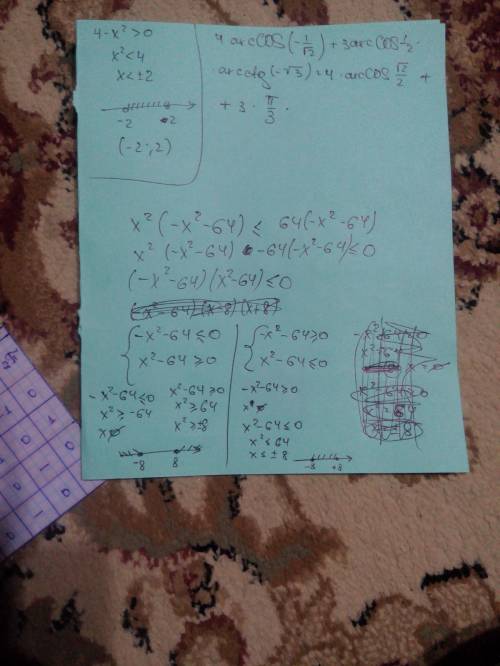 4-x²>0
x²<4
x<±2
-2 2
(-2;2)
4 arccos(-1/√2) + 3 arccos 1/2 ·
· arcctg(-√3) = 4 · arccos √2/2 +
+ 3 · π/3 ·
x²(-x²-64) ≤ 64(-x²-64)
x²(-x²-64) -64(-x²-64) ≤ 0
(-x²-64)(x²-64) ≤ 0
{ -x²-64 ≤ 0
x²-64 ≥ 0
-x²-64 ≤ 0
x² ≥ -64
x²-64 ≥ 0
x² ≥ 64
x² ≥ ±8
-8 8
{ -x²-64 ≥ 0
x²-64 ≤ 0
-x²-64 ≥ 0
x²-64 ≤ 0
x² ≤ 64
x ≤ ±8
-8 +8